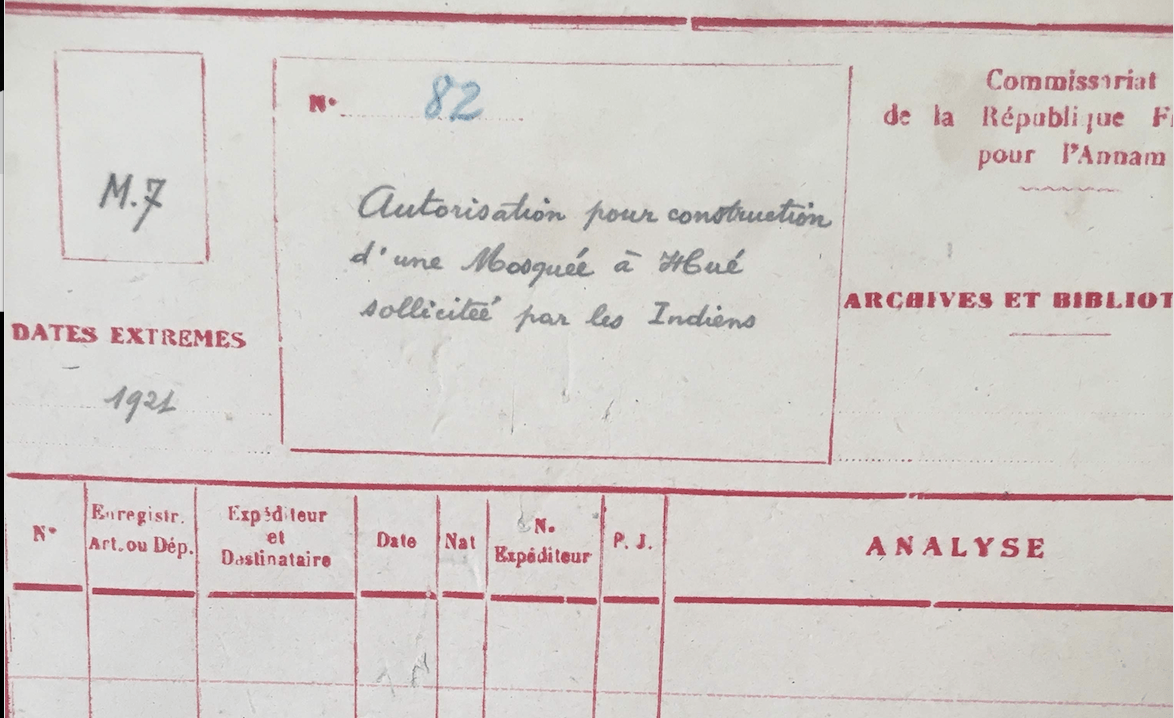 M.7
N° 82
Autorisation pour construction
d'une Mosquée à Hué
sollicitéé par les Indiens
Commissariat
de la République F
pour l'Annam
ARCHIVES ET BIBLIOT
DATES EXTREMES
1921
N°
Enregistr.
Art. ou Dép.
Expéditeur
et
Destinataire
Date
Nat
N.
Expéditeur
P. J.
ANALYSE